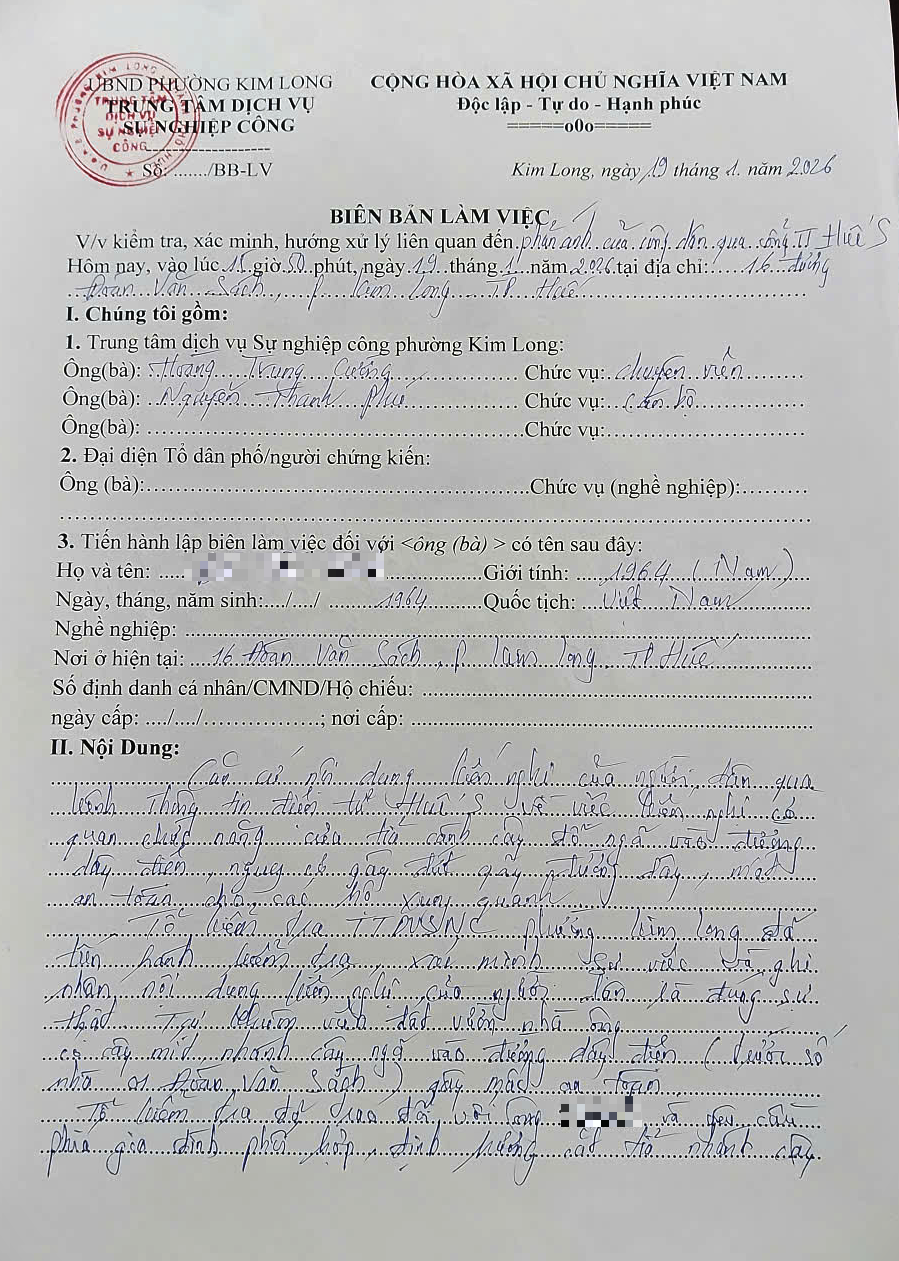 UBND PHƯỜNG KIM LONG
TRUNG TÂM DỊCH VỤ
SỰ NGHIỆP CÔNG
Số: ......./BB-LV
TRUNG TÂM
DỊCH VỤ
SỰ NGHIỆP
CÔNG
CỘNG HÒA XÃ HỘI CHỦ NGHĨA VIỆT NAM
Độc lập - Tự do - Hạnh phúc
=====o0o=====
Kim Long, ngày 19 tháng 1. năm 2026
BIÊN BẢN LÀM VIỆC
V/v kiểm tra, xác minh, hướng xử lý liên quan đến phản ánh của công dân qua cổng TT Huế S
Hôm nay, vào lúc 15 giờ 50 phút, ngày 19 tháng 1 năm 2026 tại địa chỉ: 16 đường
Đoàn Văn Sách, P. Kim Long TP Huế
I. Chúng tôi gồm:
1. Trung tâm dịch vụ Sự nghiệp công phường Kim Long:
Ông(bà): Hoàng Trung Cường Chức vụ: chuyên viên
Ông(bà): Nguyễn Thanh Phú Chức vụ: Cán bộ
Ông(bà): Chức vụ:
2. Đại diện Tổ dân phố/người chứng kiến:
Ông (bà): Chức vụ (nghề nghiệp):
3. Tiến hành lập biên làm việc đối với <ông (bà) > có tên sau đây:
Họ và tên: Giới tính: 1964 (Nam)
Ngày, tháng, năm sinh:..../..../ 1964 Quốc tịch: Việt Nam
Nghề nghiệp:
Nơi ở hiện tại: 16 Đoàn Văn Sách, P Kim Long TP Huế
Số định danh cá nhân/CMND/Hộ chiếu:
ngày cấp: ..../..../................; nơi cấp:
II. Nội Dung:
Căn cứ nội dung kiến nghị của người dân qua
kênh Thông tin điện tử Huế S về việc kiến nghị cơ
quan chức năng cưa tỉa cành cây đổ ngã vào đường
dây điện, nguy cơ gây đứt gãy đường dây, mất
an toàn cho các hộ xung quanh.
Tổ kiểm tra TTDVSNC phường Kim Long đã
tiến hành kiểm tra, xác minh sự việc và ghi
nhận nội dung kiến nghị của người dân là đúng sự
thật. Tại khuôn viên đất vườn nhà ông
có cây mít, nhánh cây ngã vào đường dây điện (trước số
nhà 01 Đoàn Văn Sách) gây mất an toàn
Tổ kiểm tra đã trao đổi với ông và yêu cầu
phía gia đình phối hợp, định hướng cắt tỉa nhánh cây